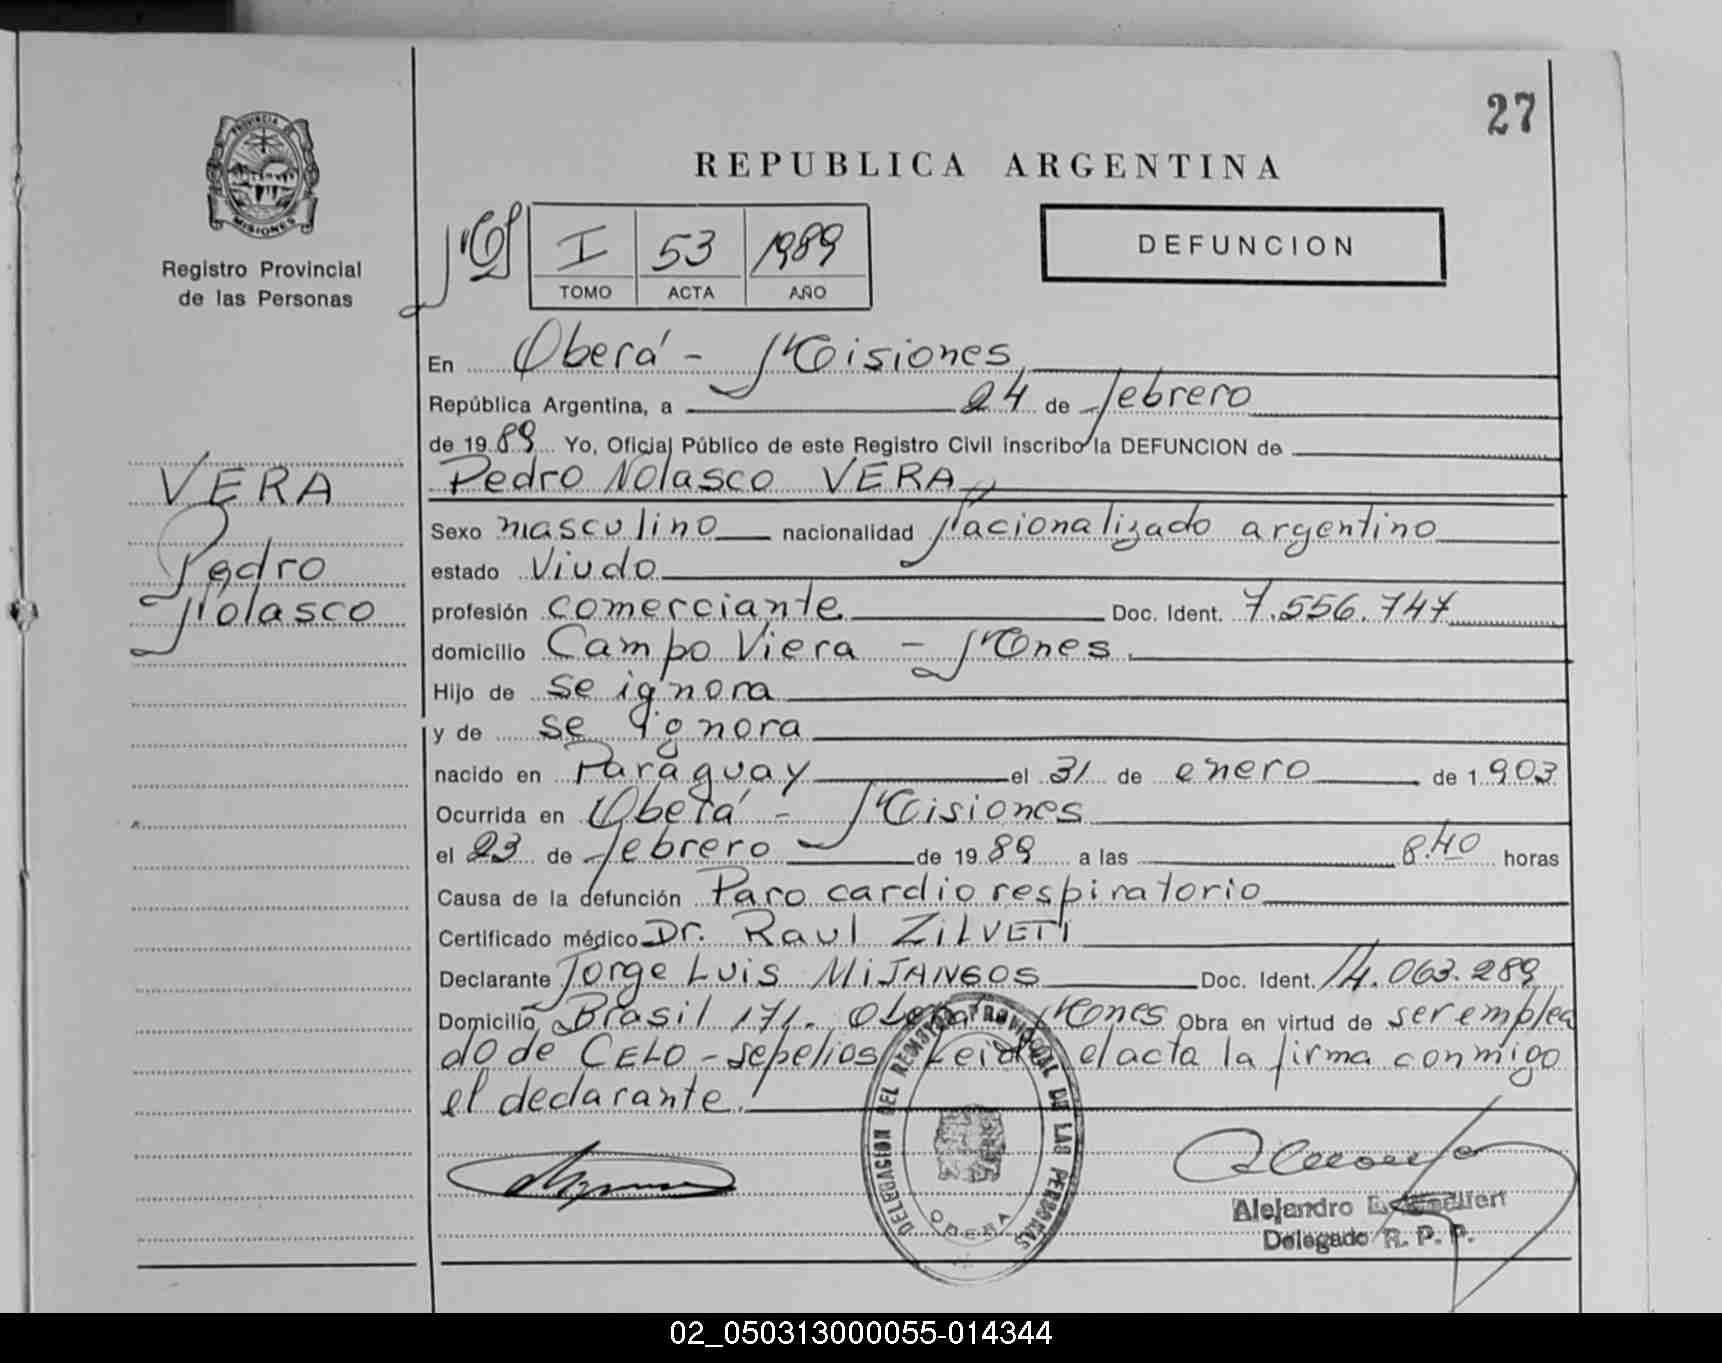 27
PROVINCIA DE
MISIONES
Registro Provincial
de las Personas
REPUBLICA ARGENTINA
I 53 1989
TOMO ACTA AÑO
DEFUNCION
En Oberá - Misiones
República Argentina, a 24 de febrero
de 1989 Yo, Oficial Público de este Registro Civil inscribo la DEFUNCION de
Pedro Nolasco VERA
VERA
Pedro
Nolasco
Sexo masculino nacionalidad Nacionalizado argentino
estado Viudo
profesión comerciante Doc. Ident. 7.556.747
domicilio Campo Viera - Mnes.
Hijo de se ignora
y de se ignora
nacido en Paraguay el 31 de enero de 1903
Ocurrida en Oberá - Misiones
el 23 de febrero de 1989 a las 8.40 horas
Causa de la defunción Paro cardio respiratorio
Certificado médico Dr. Raul ZILVETI
Declarante Jorge Luis MIJANGOS Doc. Ident. 14.063.289
Domicilio Brasil 171. Oberá Mnes Obra en virtud de ser emplea
do de CELO - sepelios Leida el acta la firma conmigo
el declarante.
DELEGACION DEL REGISTRO PROVINCIAL DE LAS PERSONAS
OBERA
Alejandro
Delegado R. P. P.
02_050313000055-014344